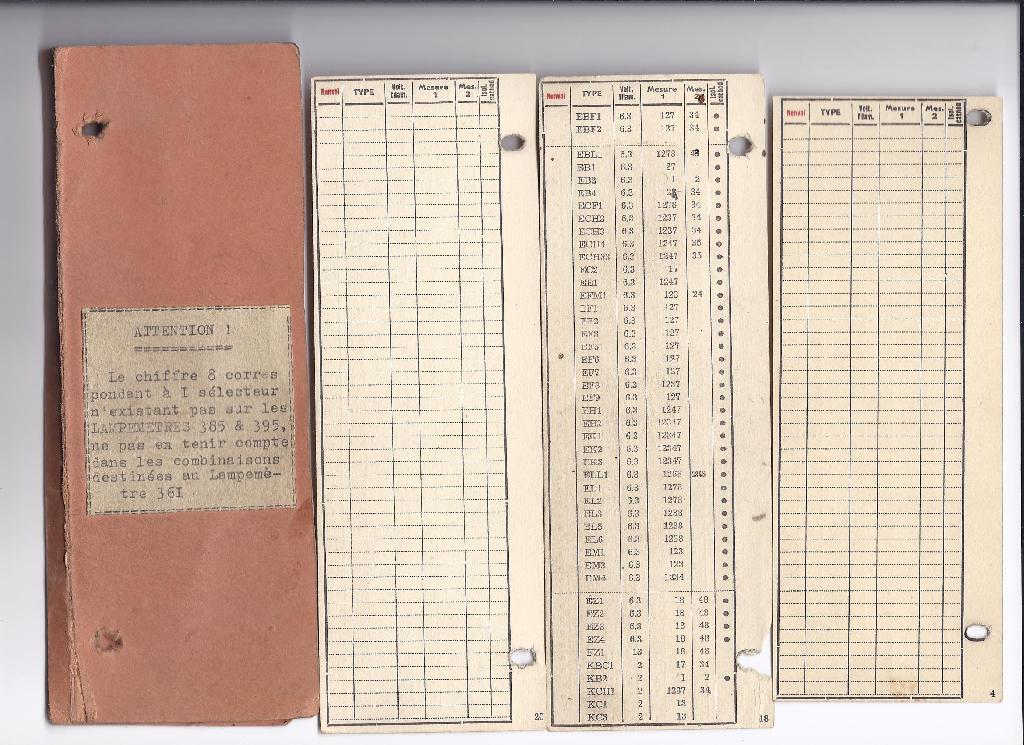 ATTENTION !
Le chiffre 8 corres
pondant à I sélecteur
n'existant pas sur les
LAMPEMETRES 385 & 395,
ne pas en tenir compte
dans les combinaisons
destinées au Lampemè-
tre 361
Renvoi TYPE Volt. Filam. Mesure 1 Mes. 2 Isol. cathod
Renvoi TYPE Volt. Filam. Mesure 1 Mes. 2 Isol. cathod
EBF1 6.3 127 34
EBF2 6.3 127 34
EBL1 6.3 1278
EB1 6.3 27
EB2 6.3 1 2
EB4 6.3 34
ECF1 6.3 1278 34
ECH2 6.3 1237 34
ECH3 6.3 1237 34
ECH4 6.3 1247 35
ECH33 6.3 1247 35
EC2 6.3
EE1 6.3 1247
EFM1 6.3 123 24
EF1 6.3 127
EF2 6.3 127
EF3 6.3 127
EF5 6.3 127
EF6 6.3 127
EF7 6.3 127
EF8 6.3 1237
EF9 6.3 127
EH1 6.3 1247
EH2 6.3 12347
EK1 6.3 12347
EK2 6.3 12347
EK3 6.3 12347
ELL1 6.3 1268
EL1 6.3 1278
EL2 6.3 1278
EL3 6.3 1238
EL5 6.3 1238
EL6 6.3 1238
EM1 6.3 123
EM3 6.3 123
EM4 6.3 1234
EZ1 6.3 18 48
EZ2 6.3 18 48
EZ3 6.3 18 48
EZ4 6.3 18 48
FZ1 13 18 48
KBC1 2 17 34
KB2 2 1 2
KCH1 2 1237 34
KC1 2 13
KC3 2 13
18
Renvoi TYPE Volt. Filam. Mesure 1 Mes. 2 Isol. cathod
4